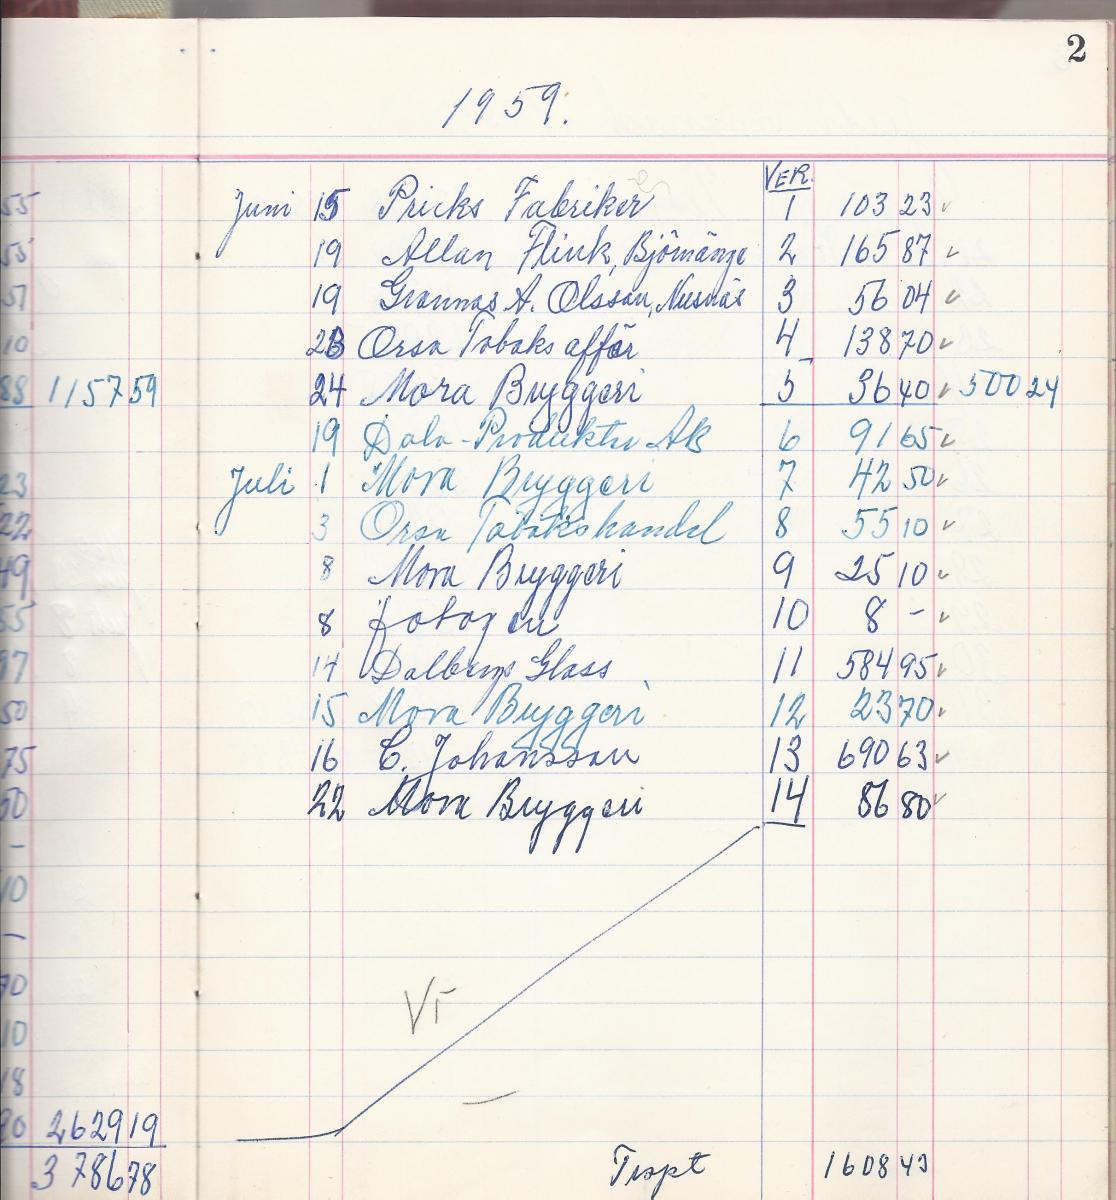 2
1959.
VER.
55 Juni 15 Pricks Fabriker 1 103 23
55 19 Allan Flink, Björnänge 2 165 87
51 19 Grannas A. Olsson, Nusnäs 3 56 04
10 23 Orsa Tobaks affär 4 138 70
88 1157 59 24 Mora Bryggeri 5 36 40 500 24
19 Dala-Produkter AB 6 91 65
23 Juli 1 Mora Bryggeri 7 42 50
22 3 Orsa Tobakshandel 8 55 10
49 8 Mora Bryggeri 9 25 10
55 8 fotogen 10 8 -
97 14 Dalbergs Glass 11 584 95
50 15 Mora Bryggeri 12 23 70
75 16 C. Johansson 13 690 63
50 22 Mora Bryggeri 14 86 80
-
10
-
70
10
18
90 2629 19
3786 78 Trspt 1608 43